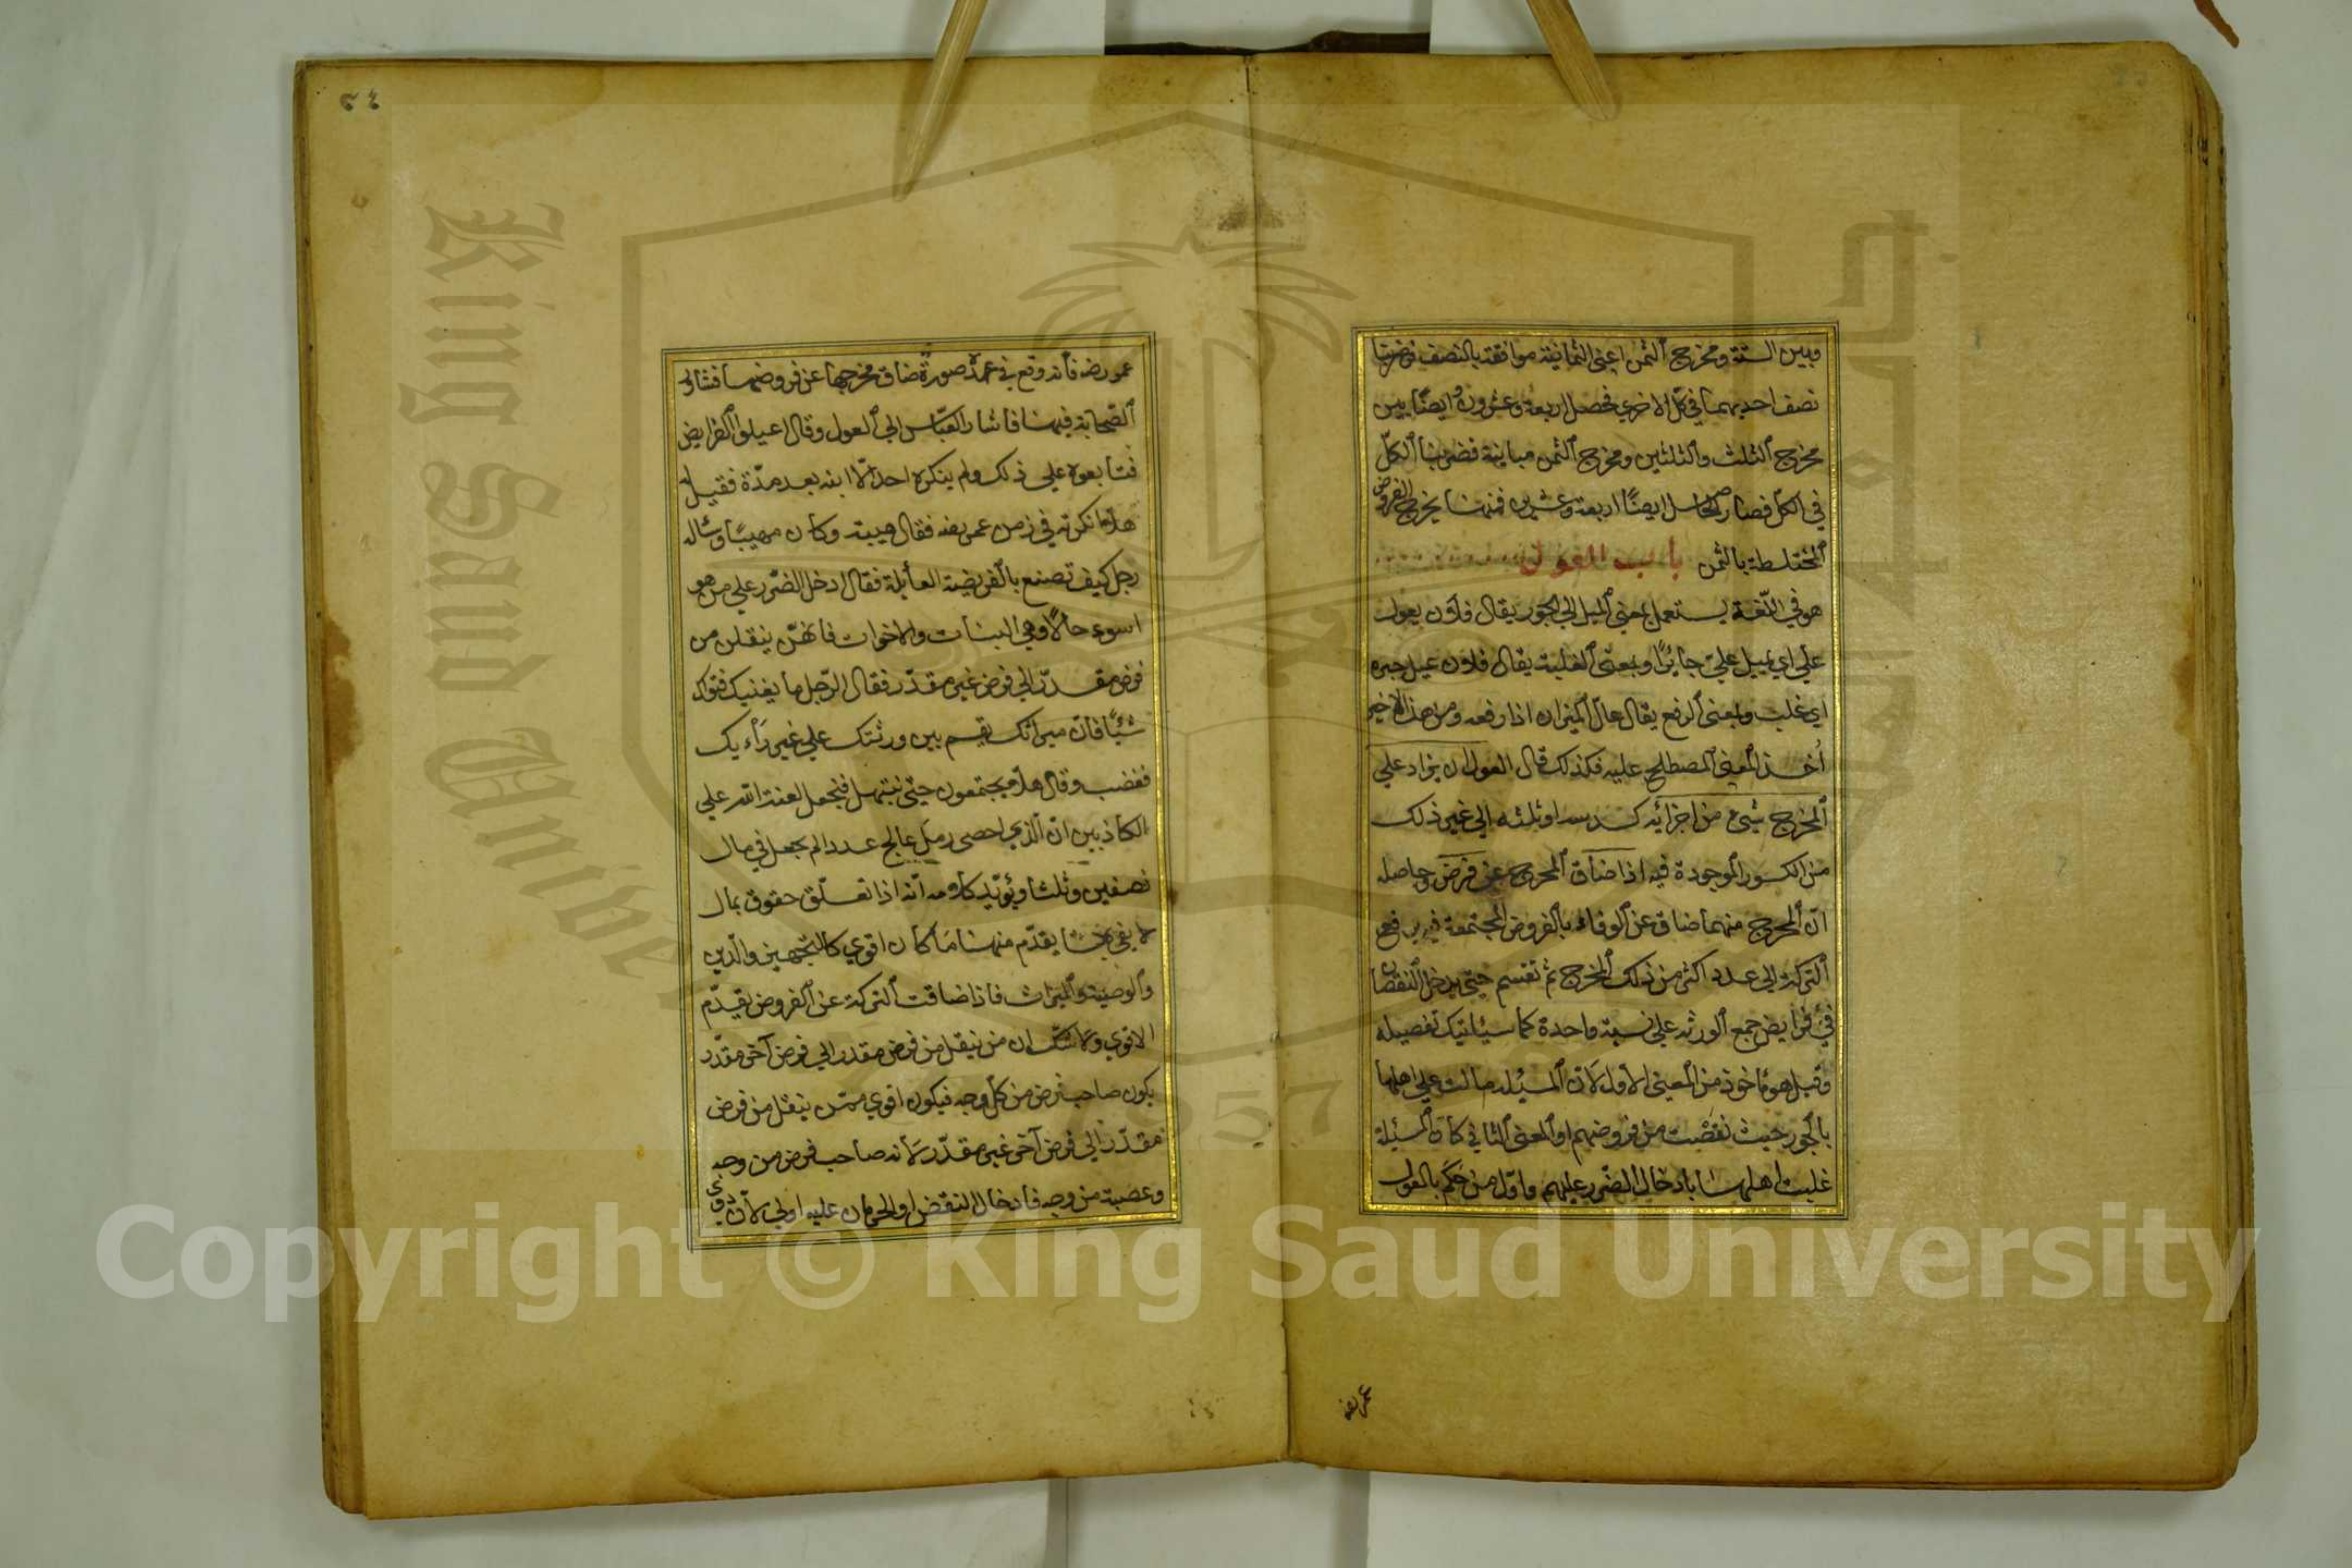 وبين الستة ومخرج الثمن اعني الثمانية موافقة بالنصف فضربنا
نصف احديهما في كل الاخري فحصل اربعة وعشرون وايضًا بين
مخرج الثلث والثلثين ومخرج الثمن مباينة فضربنا الكلّ
في الكل فصار الحاصل ايضًا اربعة وعشرين فمنها يخرج الفروض
المختلطة بالثمن باب العول
هو في اللّغة يستعمل بمعني الميل الي الجور يقال فلان يعول
علي اي يميل علي جايرًا وبمعني الغلبة يقال فلان عيل صبره
اي غلب وبمعني الرفع يقال عال الميزان اذا رفعه ومن هذا الاخير
أُخذ المعني المصطلح عليه فكذلك قال العول ان يزاد علي
المخرج شيء من اجزائه كسدسه او ثلثه الي غير ذلك
من الكسور الموجودة فيه اذا ضاق المخرج عن فرض وحاصله
انّ المخرج منهما ضاق عن الوفاء بالفروض المجتمعة فيه يرفع
التركة الي عدد اكثر من ذلك المخرج ثم تقسم حتي يدخل النقصان
في فرايض جمع الورثة علي نسبة واحدة كما سيأتيك تفصيله
وقيل هو مأخوذ من المعني الاول لانّ المسئلة مالت علي اهلها
بالجور حيث نقصت من فروضهم او المعني الثاني كان المسئلة
غلبت اهلها بادخال الضّرر عليهم واوّل من حكم بالعول
عمر رضه
٥٤
عمر رضه فأنه وقع في عهده صورة ضاق مخرجها عن فروضها فشاور
الصّحابة فيها فاشار العبّاس الي العول وقال اعيلوا الفرايض
فتابعوه علي ذلك ولم ينكره احد الّا ابنه بعد مدّة فقيل له
هلّا انكرته في زمن عمر رضه فقال هيبته وكان مهيبًا وسأله
رجل كيف تصنع بالفريضة العايلة فقال ادخل الضّرر علي من هو
اسوء حالًا وهي البنات والاخوات فانهنّ ينقلن من
فرض مقدّر الي فرض غير مقدّر فقال الرّجل ما يغنيك فتواك
شيًا فانّ ميراثك يقسم بين ورثتك علي غير رأيك
فغضب وقال هلّا يجتمعون حتي نبتهل فنجعل لعنة الله علي
الكاذبين انّ الّذي احصي رمل عالج عددا لم يجعل في مال
نصفين وثلثا ويؤيّد كلامه انّه اذا تعلّق حقوق بمال
لا يفي بها يقدّم منها ما كان اقوي كالتجهيز والدّين
والوصية والميراث فاذا ضاقت التركة عن الفروض يقدّم
الاقوي ولا شك ان من ينقل من فرض مقدر الي فرض آخر مقدّر
يكون صاحب فرض من كل وجه فيكون اقوي ممّن ينقل من فرض
مقدّر الي فرض آخر غير مقدّر لانه صاحب فرض من وجه
وعصبة من وجه فادخال النقض او الحرمان عليه اولي لانّ ذوي
Copyright © King Saud University
King Saud University
1957